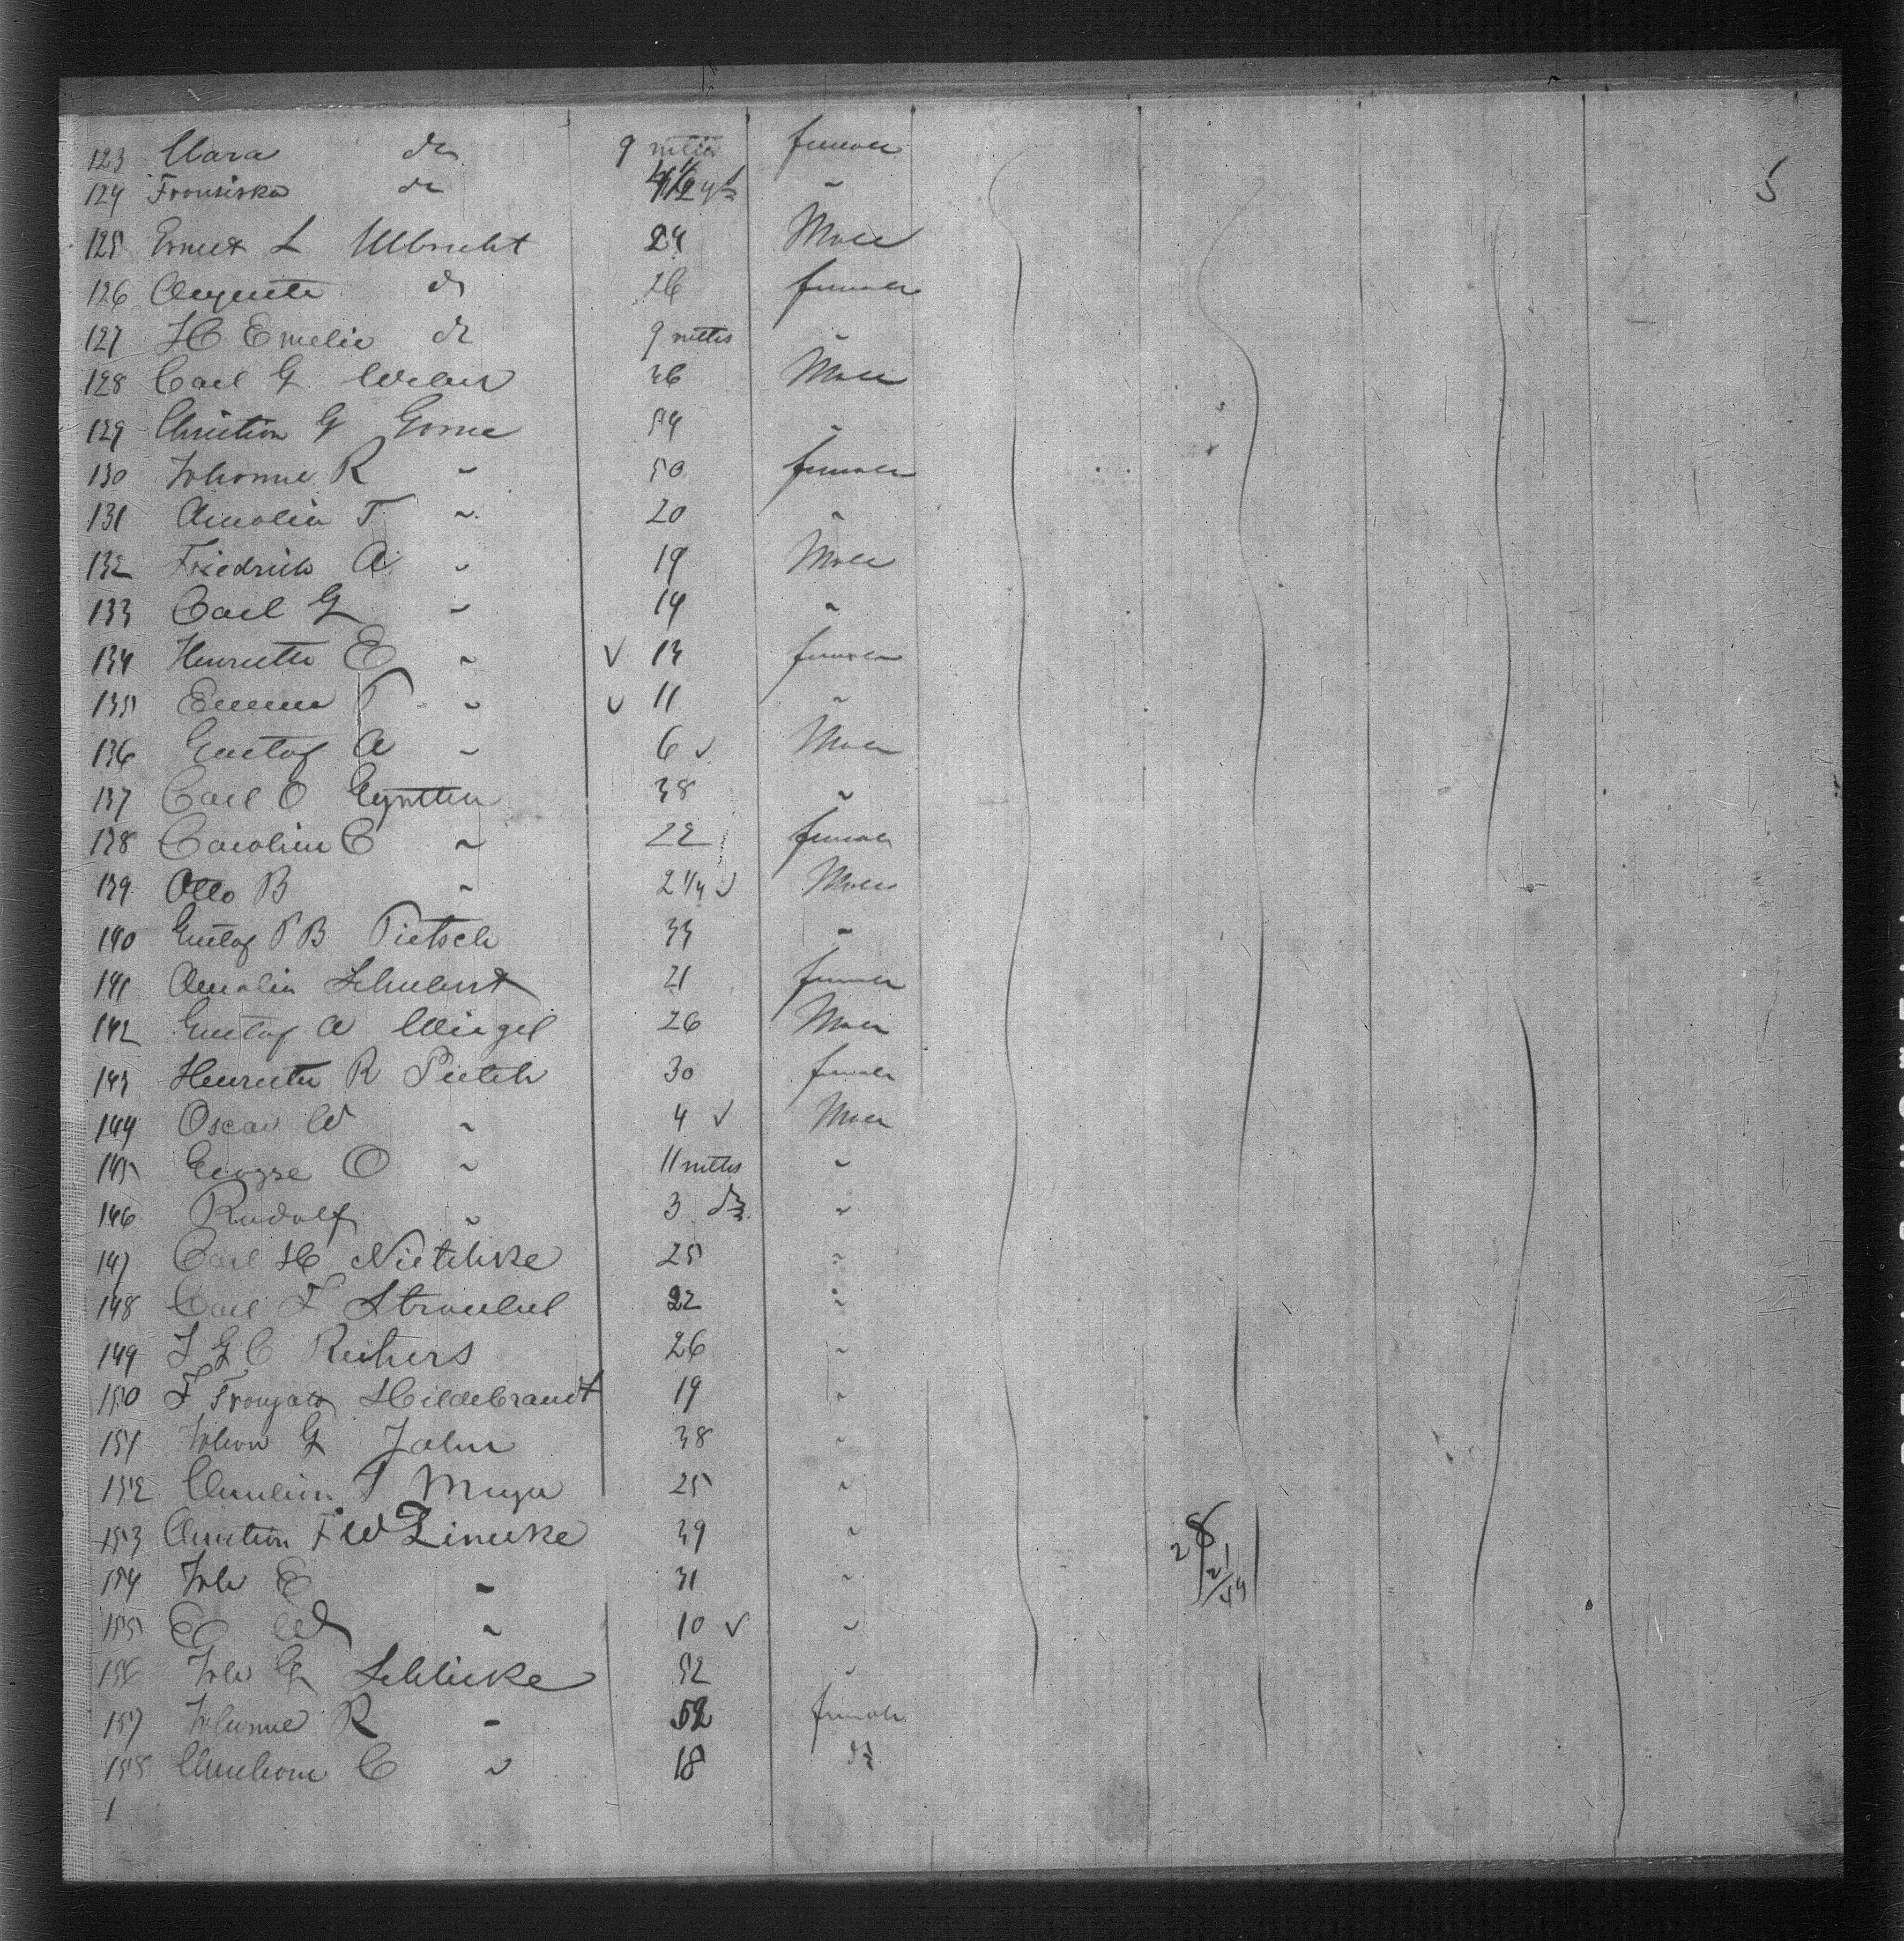 5
123 Clara do 9 mths female
124 Fransiska do "
125 Ernest L Ulbricht 24 Male
126 Auguste do 26 female
127 H Emelie do 9 mths "
128 Carl G Weber 36 Male
129 Christian G Gorne 54 "
130 Johanne R " 50 female
131 Amalia T " 20 "
132 Friedrich A " 19 Male
133 Carl G " 14 "
134 Henriette E " 13 female
135 Emma T " 11 "
136 Gustaf A " 6 Male
137 Carl O 38 "
138 Caroline C " 22 female
139 Otto B " 2 1/4 Male
140 Gustaf P B Pietsch 33 "
141 Amalia Schubert 21 female
142 Gustaf A Wiegel 26 Male
143 Henriette R Pietch 30 female
144 Oscar W " 4 Male
145 George O " 11 mths "
146 Rudolf " 3 do "
147 Carl H Nietchke 25 "
148 Carl F 22 "
149 J G C Reihers 26 "
150 F Hildebrandt 19 "
151 Johan G Jahn 38 "
152 25 "
153 Christian F W Zincke 39 "
154 Joh E " 31 "
155 E " 10 "
156 Joh G Schlicke 52 "
157 Johanne R " 52 female
158 C " 18 do
1